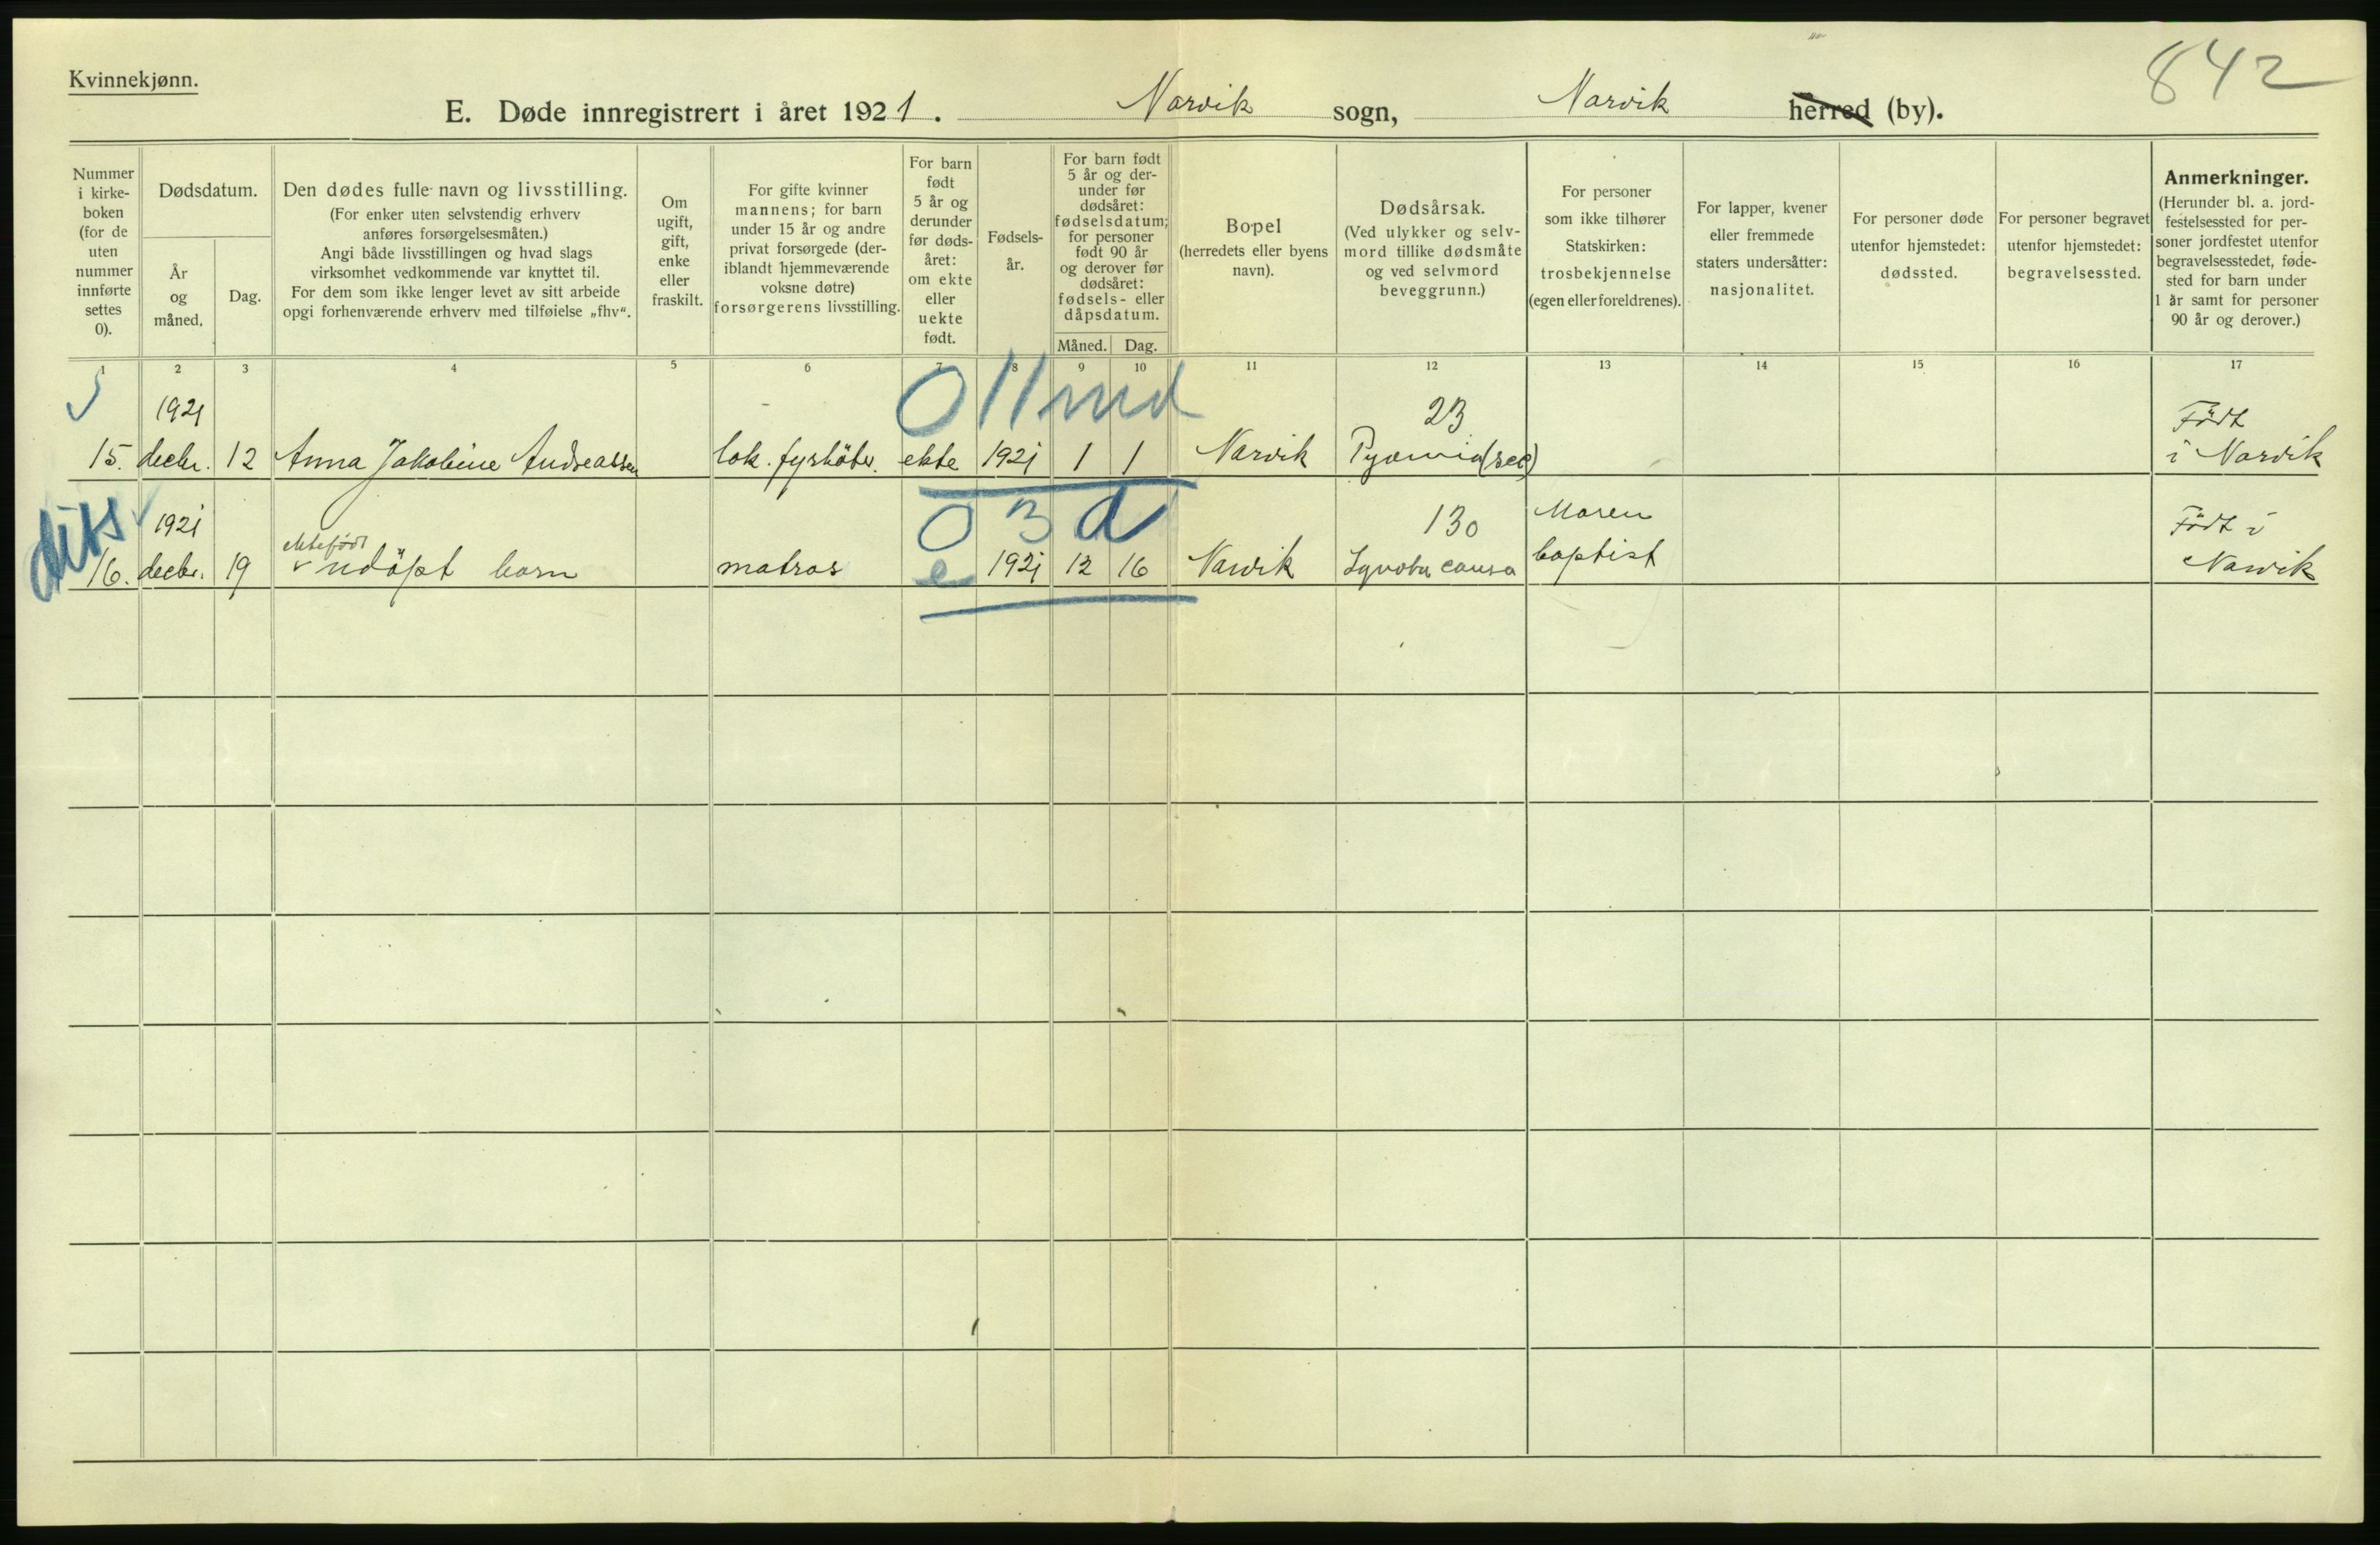 842
Kvinnekjønn.
E. Døde innregistrert i året 1921. Narvik sogn, Narvik herred (by).
Nummer
i kirke-
boken
(for de
uten
nummer
innførte
settes
0).
Dødsdatum.
År
og
måned.
Dag.
Den dødes fulle navn og livsstilling.
(For enker uten selvstendig erhverv
anføres forsørgelsesmåten.)
Angi både livsstillingen og hvad slags
virksomhet vedkommende var knyttet til.
For dem som ikke lenger levet av sitt arbeide
opgi forhenværende erhverv med tilføielse „fhv“.
Om
ugift,
gift,
enke
eller
fraskilt.
For gifte kvinner
mannens; for barn
under 15 år og andre
privat forsørgede (der-
iblandt hjemmeværende
voksne døtre)
forsørgerens livsstilling.
For barn
født
5 år og
derunder
før døds-
året:
om ekte
eller
uekte
født.
Fødsels-
år.
For barn født
5 år og der-
under før
dødsåret:
fødselsdatum;
for personer
født 90 år
og derover før
dødsåret:
fødsels- eller
dåpsdatum.
Måned. Dag.
Bopel
(herredets eller byens
navn).
Dødsårsak.
(Ved ulykker og selv-
mord tillike dødsmåte
og ved selvmord
beveggrunn.)
For personer
som ikke tilhører
Statskirken:
trosbekjennelse
(egen eller foreldrenes).
For lapper, kvener
eller fremmede
staters undersåtter:
nasjonalitet.
For personer døde
utenfor hjemstedet:
dødssted.
For personer begravet
utenfor hjemstedet:
begravelsessted.
Anmerkninger.
(Herunder bl. a. jord-
festelsessted for per-
soner jordfestet utenfor
begravelsesstedet, føde-
sted for barn under
1 år samt for personer
90 år og derover.)
1 2 3 4 5 6 7 8 9 10 11 12 13 14 15 16 17
1921 0 11 md 23 Födt
15. decbr. 12 Anna Jakobine Andreassen lok. fyrböter. ekte 1921 1 1 Narvik Pyæmia (sec) i Narvik
1921 ektefödt 0 3 d 130 Födt i
16. decbr. 19 udöpt barn matros e 1921 12 16 Narvik causa baptist Narvik